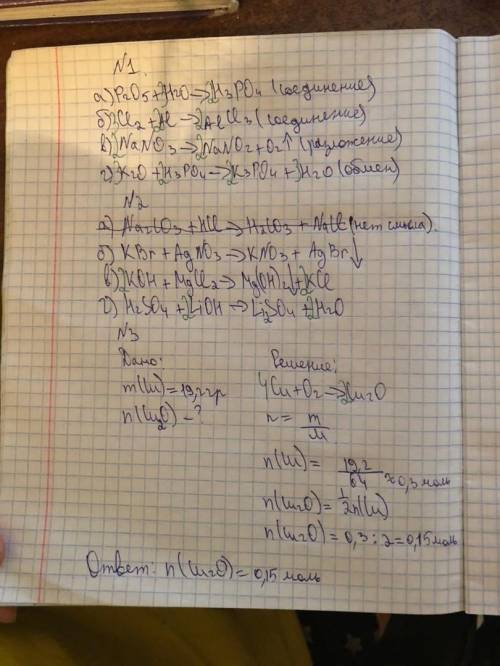 N1.
а) P2O5 + 3H2O → 2H3PO4 (соединение)
б) 3Cl2 + 2Al → 2AlCl3 (соединение)
в) 2NaNO3 → 2NaNO2 + O2↑ (разложение)
г) 3K2O + 2H3PO4 → 2K3PO4 + 3H2O (обмен)
N2
а) Na2CO3 + HCl → H2CO3 + NaCl (нет смысла).
б) KBr + AgNO3 → KNO3 + AgBr↓
в) 2KOH + MgCl2 → Mg(OH)2↓ + 2KCl
г) H2SO4 + 2LiOH → Li2SO4 + 2H2O
N3
Дано:
m(Cu) = 19,2 гр
n(Cu2O) - ?
Решение:
4Cu + O2 → 2Cu2O
n = m/M
n(Cu) = 19,2/64 ≈ 0,3 моль
n(Cu2O) = 1/2 n(Cu)
n(Cu2O) = 0,3 : 2 = 0,15 моль
Ответ: n(Cu2O) = 0,15 моль